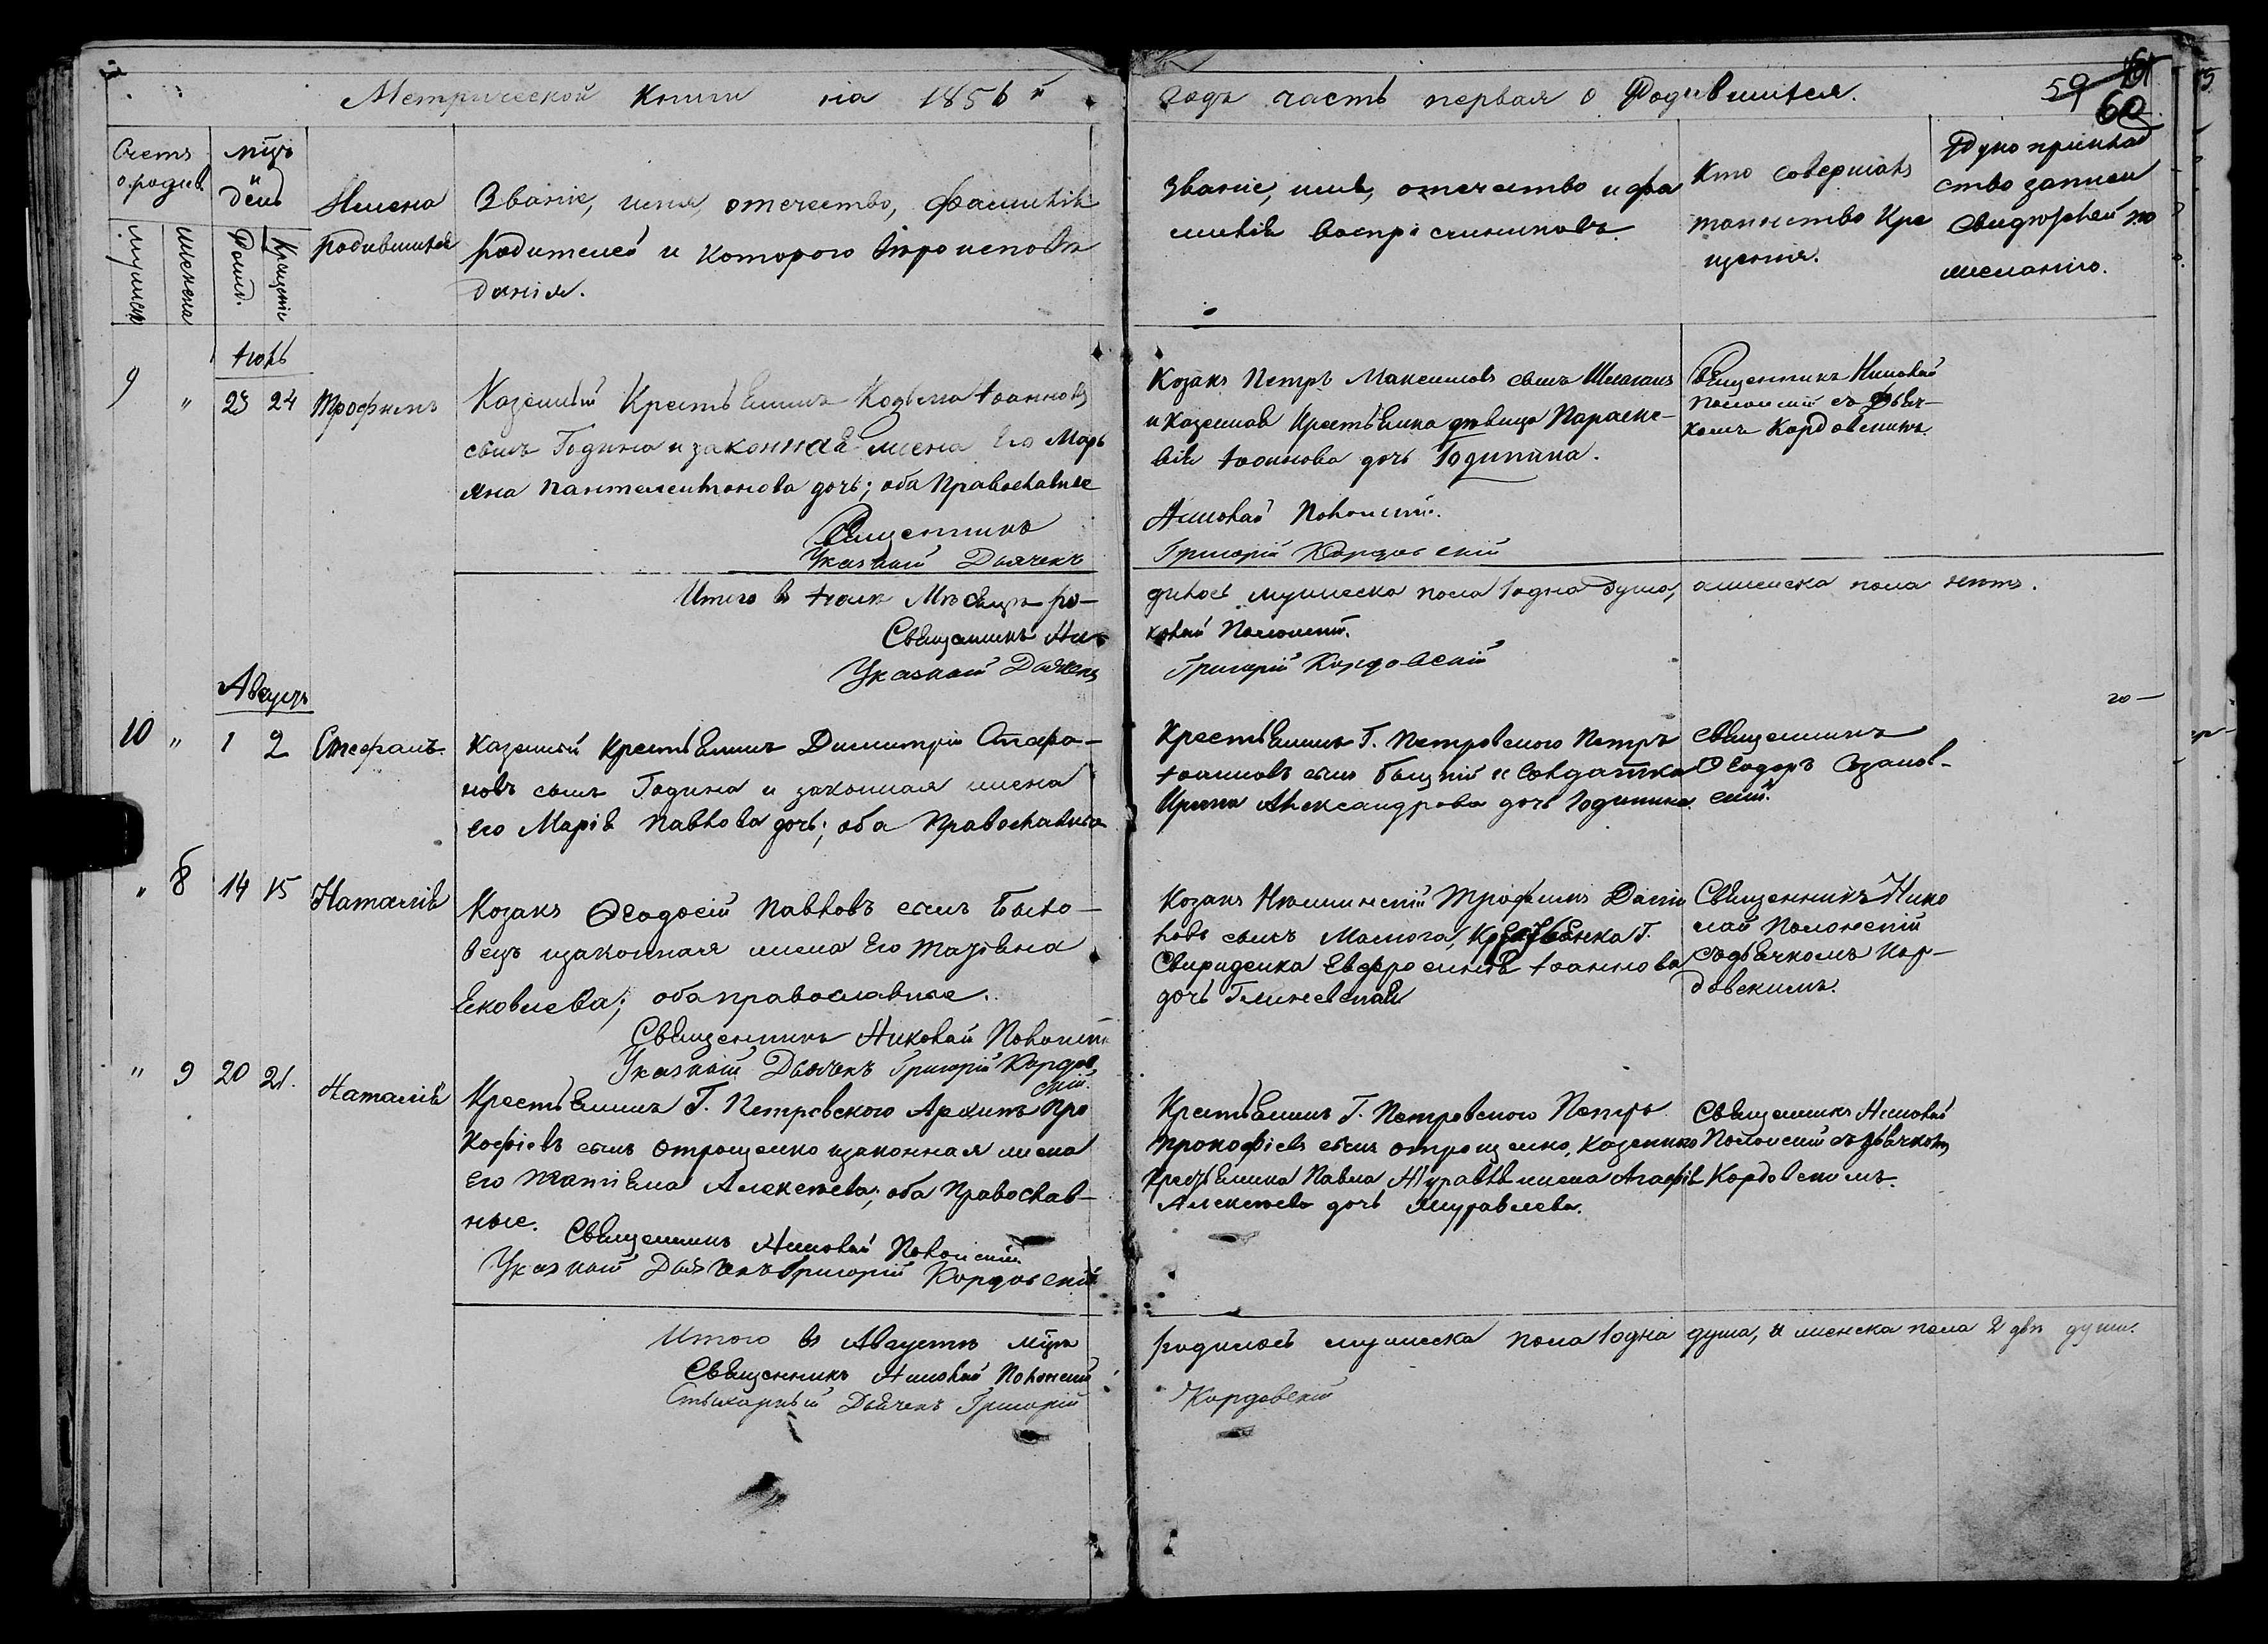 Метрической Книги на 1856 й
годъ часть первая о Родившихся.
59
60
Счетъ
о родив.
мужеска
женска
мцъ
и
день
Рожд.
Крещенія
Имена
родившихся
Званіе, имя, отечество, фамилія
родителей и которого вѣроисповѣ
данія.
Званіе, имя, отечество и фа
милія воспріемниковъ.
Кто совершалъ
таинство Кре
щенія.
Рукоприклад
ство записи
свидѣтелей по
желанію.
Іюль
9 " 23 24 Трофимъ
Казенный Крестьянинъ Козьма Іоанновъ
сынъ Година и законная жена Его Марь
яна Пантелеимонова дочь; оба Православные
Священникъ
Указной Дьячекъ
Козакъ Петръ Максимовъ сынъ
и Казенная Крестьянка дѣвица Параске-
вія Іоаннова дочь Годинина.
Николай Полонскій.
Григорій Кордовскій
Священникъ Николай
Полонскій съ Дьяч-
комъ Кордовскимъ.
Итого въ Іюлѣ Мѣсяцѣ ро-
Священникъ Ни-
Указной Дьячекъ
дилось мужеска пола 1 одна душа, а женска пола нетъ.
колай Полонскій.
Григорій Кордовскій
Августъ
10 " 1 2 Стефанъ
Казенной Крестьянинъ Димитрій Стефа-
новъ сынъ Година и законная жена
его Марія Павлова дочь; оба Православные
Крестьянинъ Г. Петровского Петръ
Іоанновъ сынъ и Солдатка
Ирина Александрова дочь Годинина
Священникъ
Ѳеодоръ
скій.
" 8 14 15 Наталія
Козакъ Ѳеодосій Павловъ сынъ Было-
вецъ и законная жена Его Татіяна
Яковлева; оба православные.
Священникъ Николай Полонскій
Указной Дьячекъ Григорій Кордов
скій.
Козакъ Нѣжинскій Трофимъ Дани
ловъ сынъ Малюга, Крестьянка Г.
Свириденка Евфросинія Іоаннова
дочь
Священникъ Нико
лай Полонскій
съ дьячкомъ Кор-
довскимъ.
" 9 20 21. Наталія
Крестьянинъ Г. Петровского Архипъ Про
кофіевъ сынъ Отрощенко и законная жена
его Татіяна Алексѣева; оба Православ-
ные.
Священникъ Николай Полонскій.
Указной Дьячекъ Григорій Кордовскій
Крестьянинъ Г. Петровского Петръ
Прокофіевъ сынъ Отрощенко, Казенного
Крестьянина Павла Журавля жена Агафія
Алексѣева дочь Журавлева.
Священникъ Николай
Полонскій съ дьячкомъ
Кордовскимъ.
Итого въ Августѣ мцѣ
Священникъ Николай Полонскій
Стихарный Дьячекъ Григорій
родилось мужеска пола 1 одна душа, и женска пола 2 двѣ души.
Кордовскій